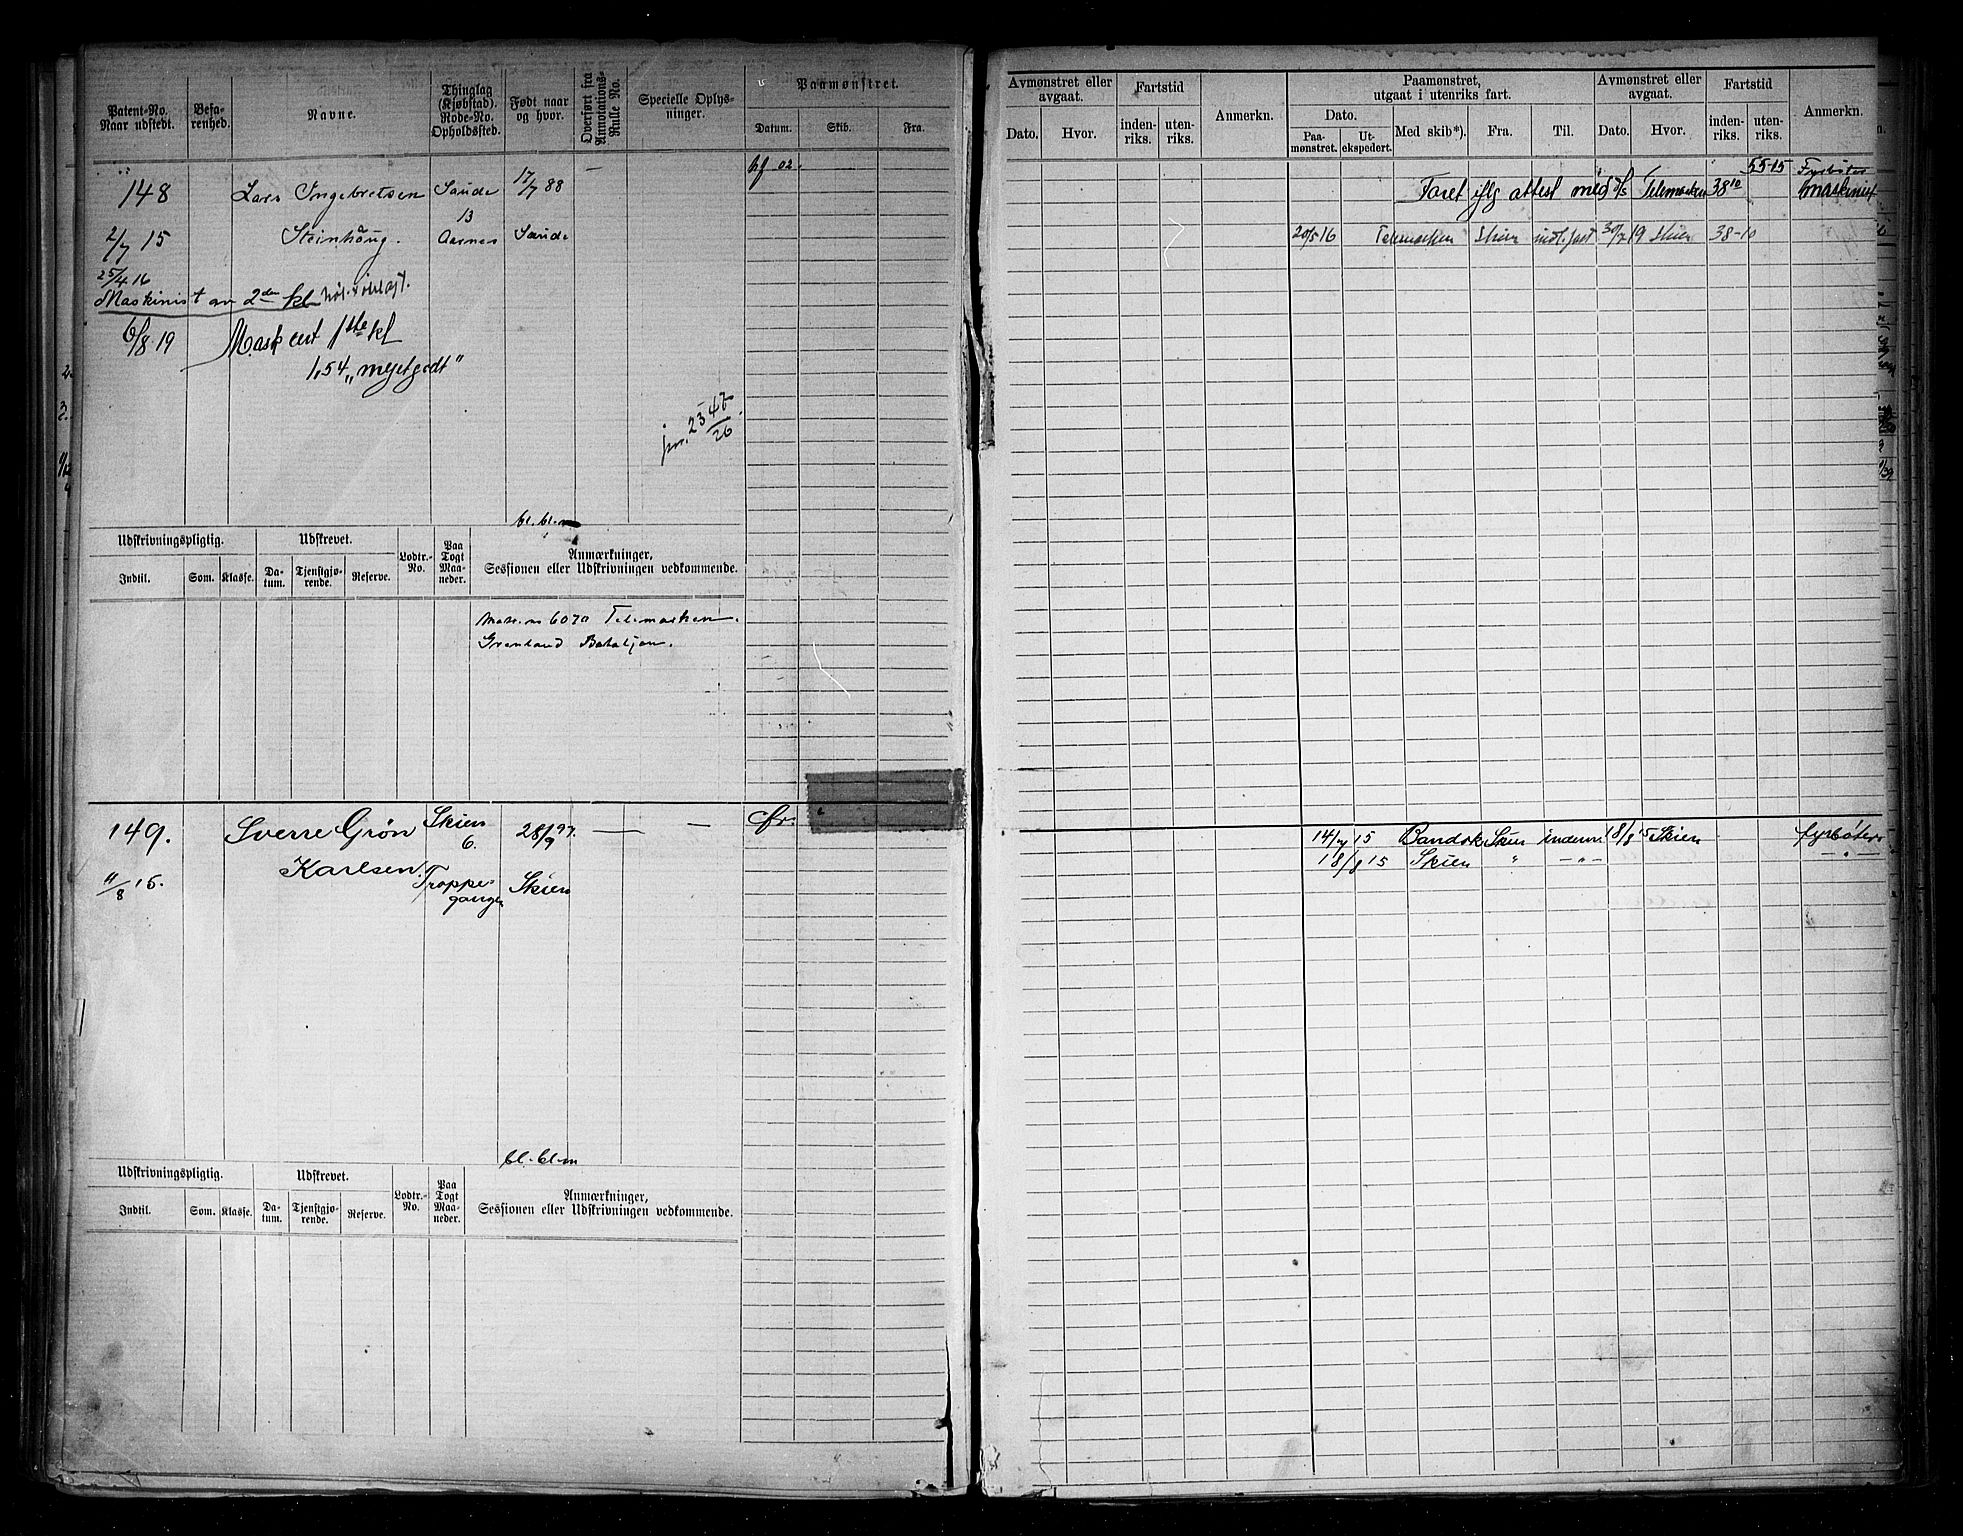 Patent-No.
Naar udstedt.
Befa-
renhed.
Navne.
Thinglag
(Kjøbstad).
Rode-No.
Opholdssted.
Født naar
og hvor.
Overført fra
Annotations-
Rulle No.
Specielle Oplys-
ninger.
Paamønstret.
Datum. Skib. Fra.
148 Lars Ingebretsen Saude 17/7 88 —
13
2/7 15 Steinhaug. Aarnes Saude
25/4 16
Maskinist av 2den kl
6/8 19 Mask cert 1ste kl
1,54 „ meget godt"
jnr. 2347/26
bl. bl.
Udskrivningspligtig. Udskrevet. Lodtr.-
No. Paa
Togt
Maa-
neder. Anmærkninger,
Sessionen eller Udskrivningen vedkommende.
Indtil. Som. Klasse. Da-
tum. Tjenstgjø-
rende. Reserve.
6070 Telemarken.
Grenland Bataljon.
149. Sverre Grøn Skien 28/9 97. — —
6.
Karlsen.
11/8 15. Skien
bl. bl.m
Udskrivningspligtig. Udskrevet. Lodtr.-
No. Paa
Togt
Maa-
neder. Anmærkninger,
Sessionen eller Udskrivningen vedkommende.
Indtil. Som. Klasse. Da-
tum. Tjenstgjø-
rende. Reserve.
Avmønstret eller
avgaat.
Fartstid
Anmerkn.
Paamønstret,
utgaat i utenriks fart.
Avmønstret eller
avgaat.
Fartstid
Anmerkn.
Dato. Hvor. inden-
riks. uten-
riks.
Dato.
Paa-
mønstret. Ut-
ekspedert. Med skib*). Fra. Til. Dato. Hvor. inden-
riks. uten-
riks.
55-15 Fyrbøter
Faret iflg attest med d/s Telemarken 38 10 maskinist
20/5 16 Telemarken Skien indl. fart 30/7 19 Skien 38-10
14/7 15 Bandak Skien indenr. 18/8 15 Skien fyrbøter
18/8 15 Skien " —"— —"—